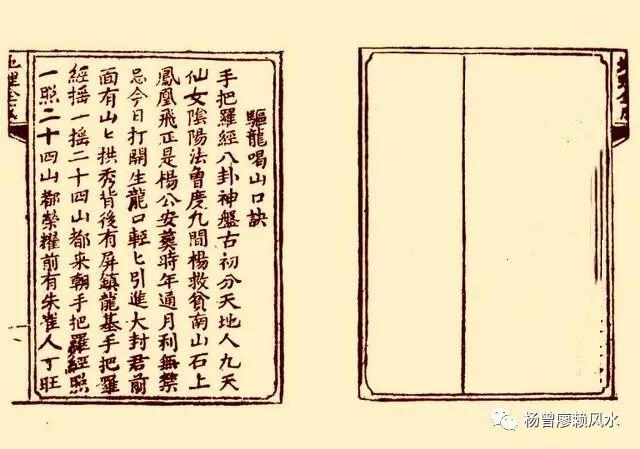 驅龍喝山口訣
手把羅經八卦神盤古初分天地人九天
仙女陰陽法曾度九間楊救貧南山石上
鳳凰飛正是楊公安葬時年通月利無禁
忌今日打開生龍口輕匕引進大封君前
面有山匕拱秀背後有屏鎮龍基手把羅
經搖一搖二十四山都來朝手把羅經照
一照二十四山都榮耀前有朱雀人丁旺
地理全成
地理全成
杨曾廖赖风水